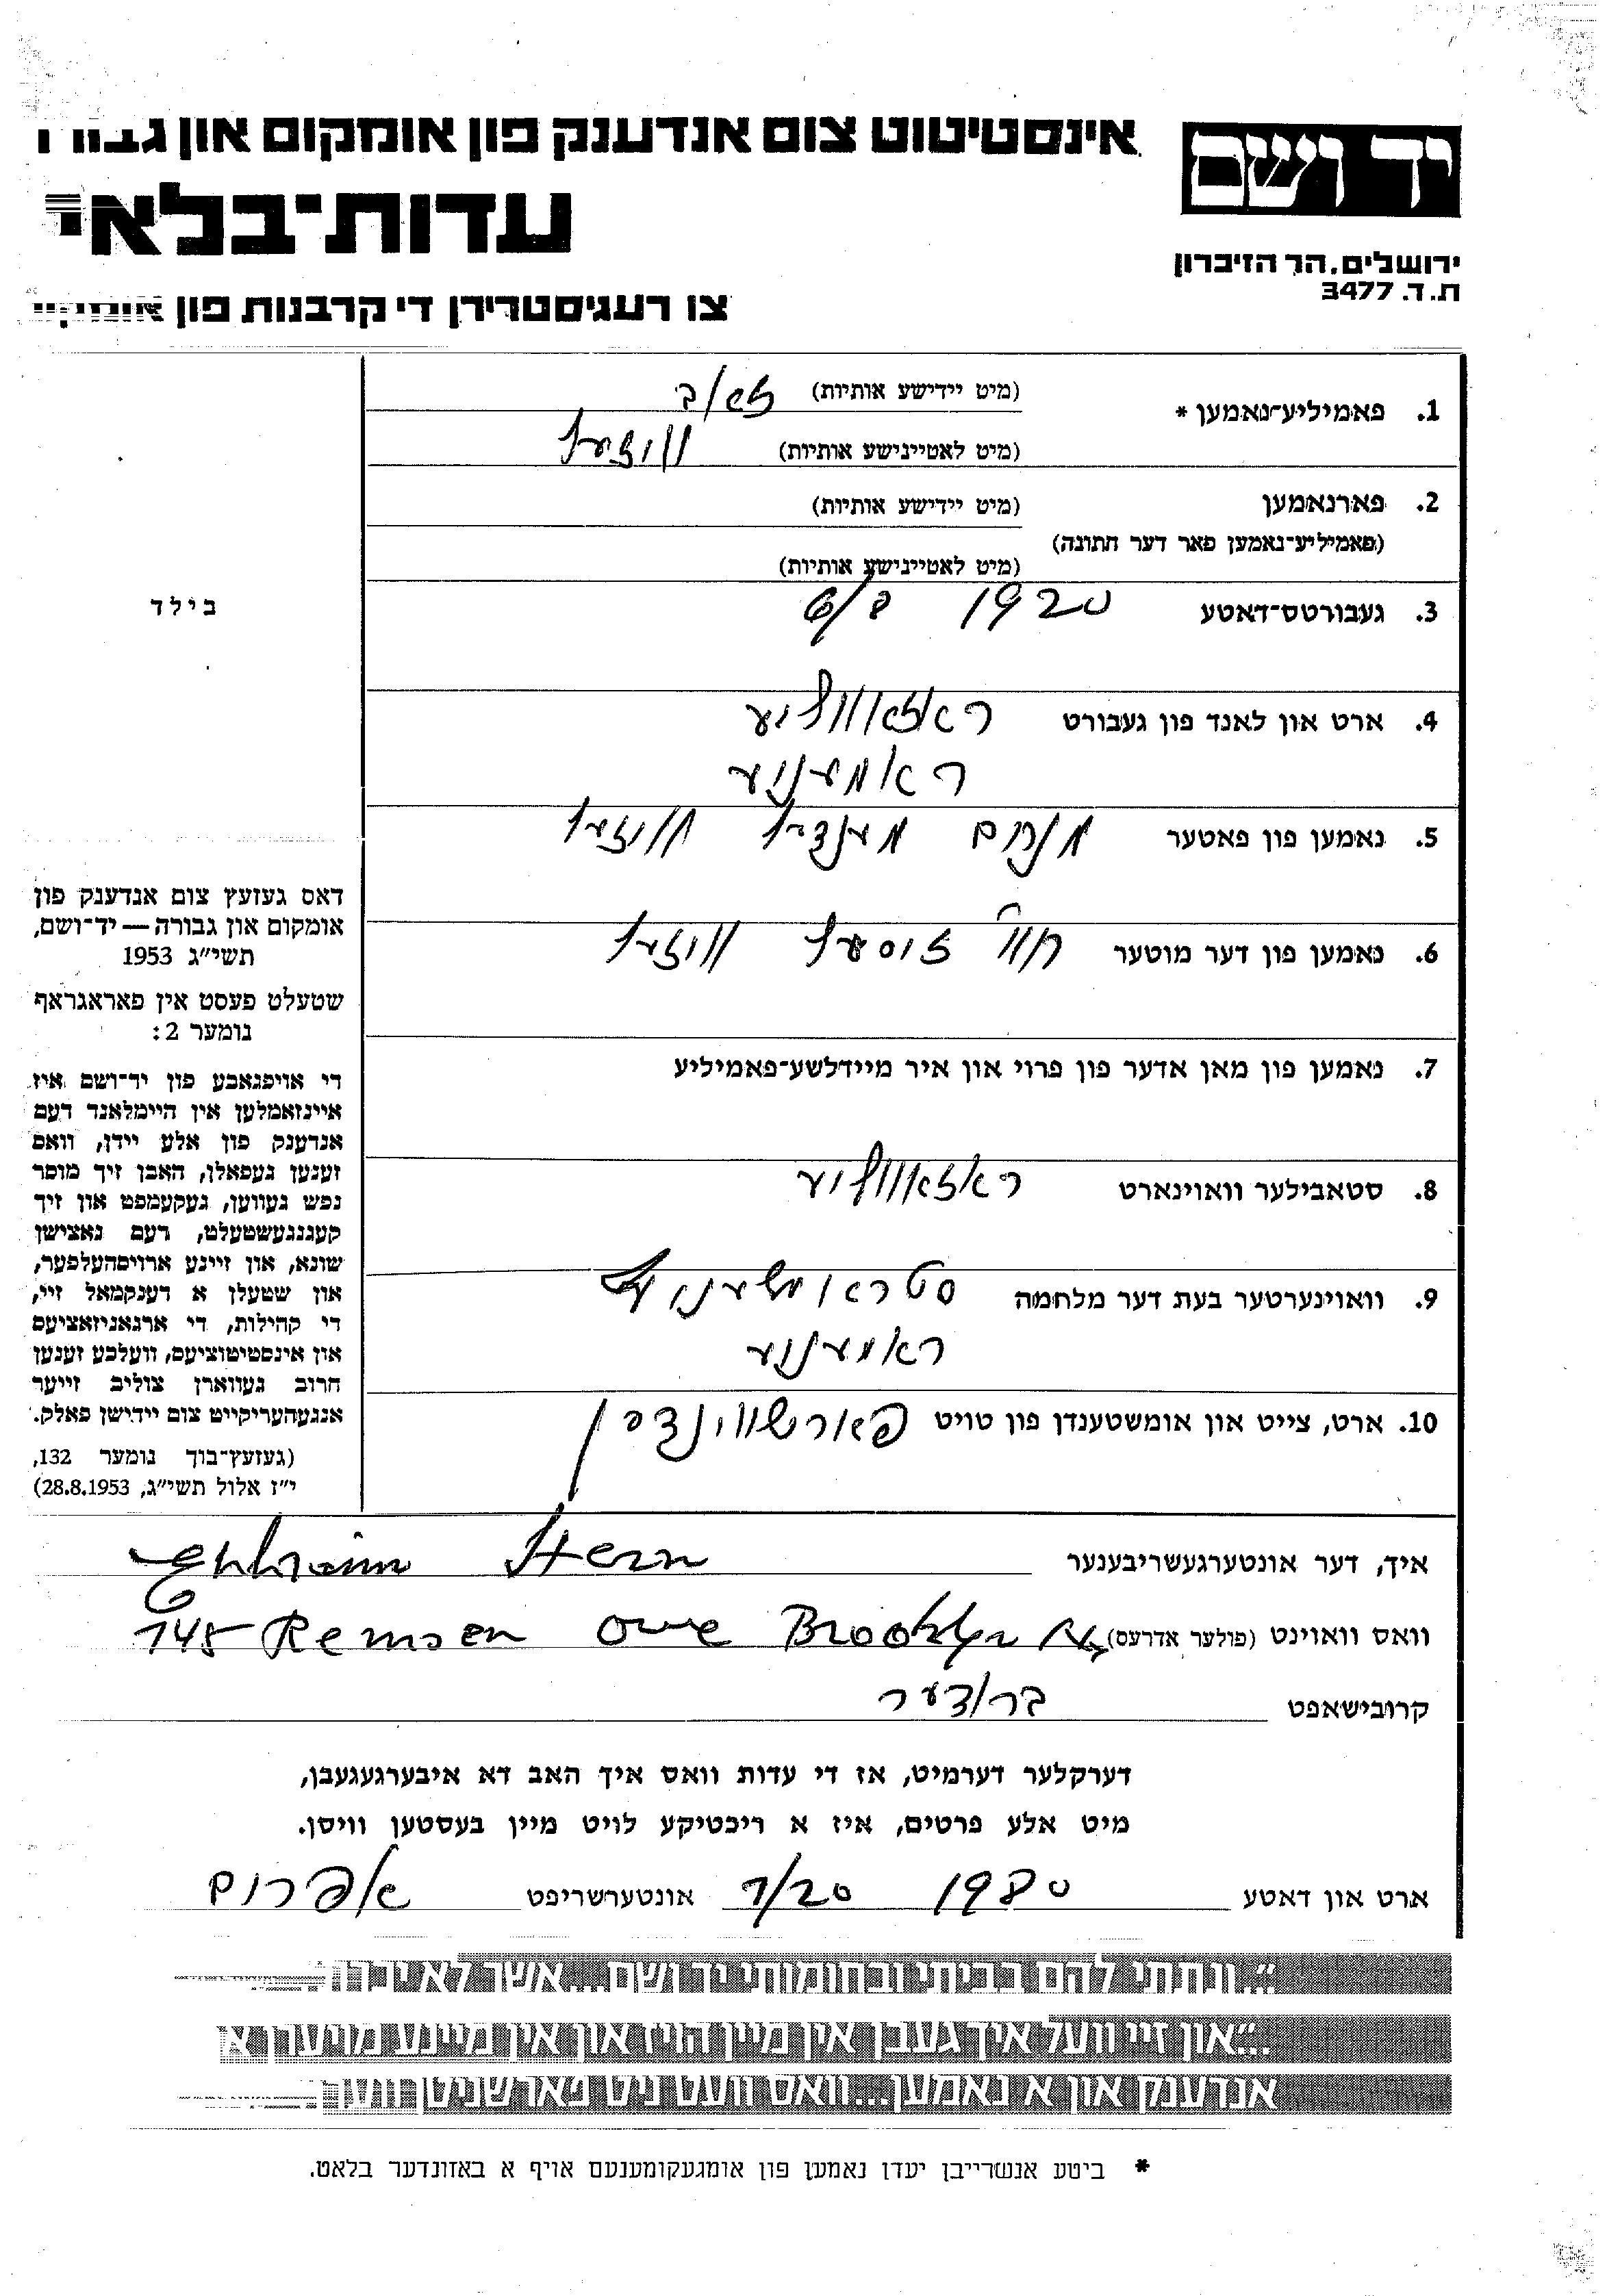 אינסטיטוט צום אנדענק פון אומקום און
יד ושם
עדות־בלאט
ירושלים, הר הזיכרון
ת. ד. 3477
צו רעגיסטרירן די קרבנות פון אומקום
1. פאמיליע־נאמען * (מיט יידישע אותיות)
(מיט לאטיינישע אותיות)
2. פארנאמען (מיט יידישע אותיות)
(פאמיליע־נאמען פאר דער חתונה)
(מיט לאטיינישע אותיות)
3. געבורטס־דאטע 1920 6/8
4. ארט און לאנד פון געבורט ראזאוולוע
ראמענוע
5. נאמען פון פאטער מנחם מענדל
6. נאמען פון דער מוטער
7. נאמען פון מאן אדער פון פרוי און איר מיידלשע־פאמיליע
8. סטאבילער וואוינארט ראזאוולוע
9. וואוינערטער בעת דער מלחמה
ראמענוע
10. ארט, צייט און אומשטענדן פון טויט פארשווינדן
בילד
דאס געזעץ צום אנדענק פון
אומקום און גבורה — יד־ושם,
תשי״ג 1953
שטעלט פעסט אין פאראגראף
נומער 2:
די אויפגאבע פון יד־ושם איז
איינזאמלען אין היימלאנד דעם
אנדענק פון אלע יידן, וואס
זענען געפאלן, האבן זיך מוסר
נפש געווען, געקעמפט און זיך
קעגנגעשטעלט, דעם נאצישן
שונא, און זיינע ארויסהעלפער,
און שטעלן א דענקמאל זיי,
די קהילות, די ארגאניזאציעס
און אינסטיטוציעס, וועלכע זענען
חרוב געווארן צוליב זייער
אנגעהעריקייט צום יידישן פאלק.
(געזעץ־בוך נומער 132,
י״ז אלול תשי״ג, 28.8.1953)
איך, דער אונטערגעשריבענער Stern Ephraim
וואס וואוינט (פולער אדרעס) 145 Remsen ave Brooklyn N.Y.
קרובישאפט ברודער
דערקלער דערמיט, אז די עדות וואס איך האב דא איבערגעגעבן,
מיט אלע פרטים, איז א ריכטיקע לויט מיין בעסטען וויסן.
ארט און דאטע 1980 7/20 אונטערשריפט אפרים
״...ונתתי להם בביתי ובחומותי יד ושם...אשר לא יכרת
...״און זיי וועל איך געבן אין מיין הויז און אין מיינע מויערן א
אנדענק און א נאמען...וואס וועט ניט פארשניטן ווערן
* ביטע אנשרייבן יעדן נאמען פון אומגעקומענעם אויף א באזונדער בלאט.